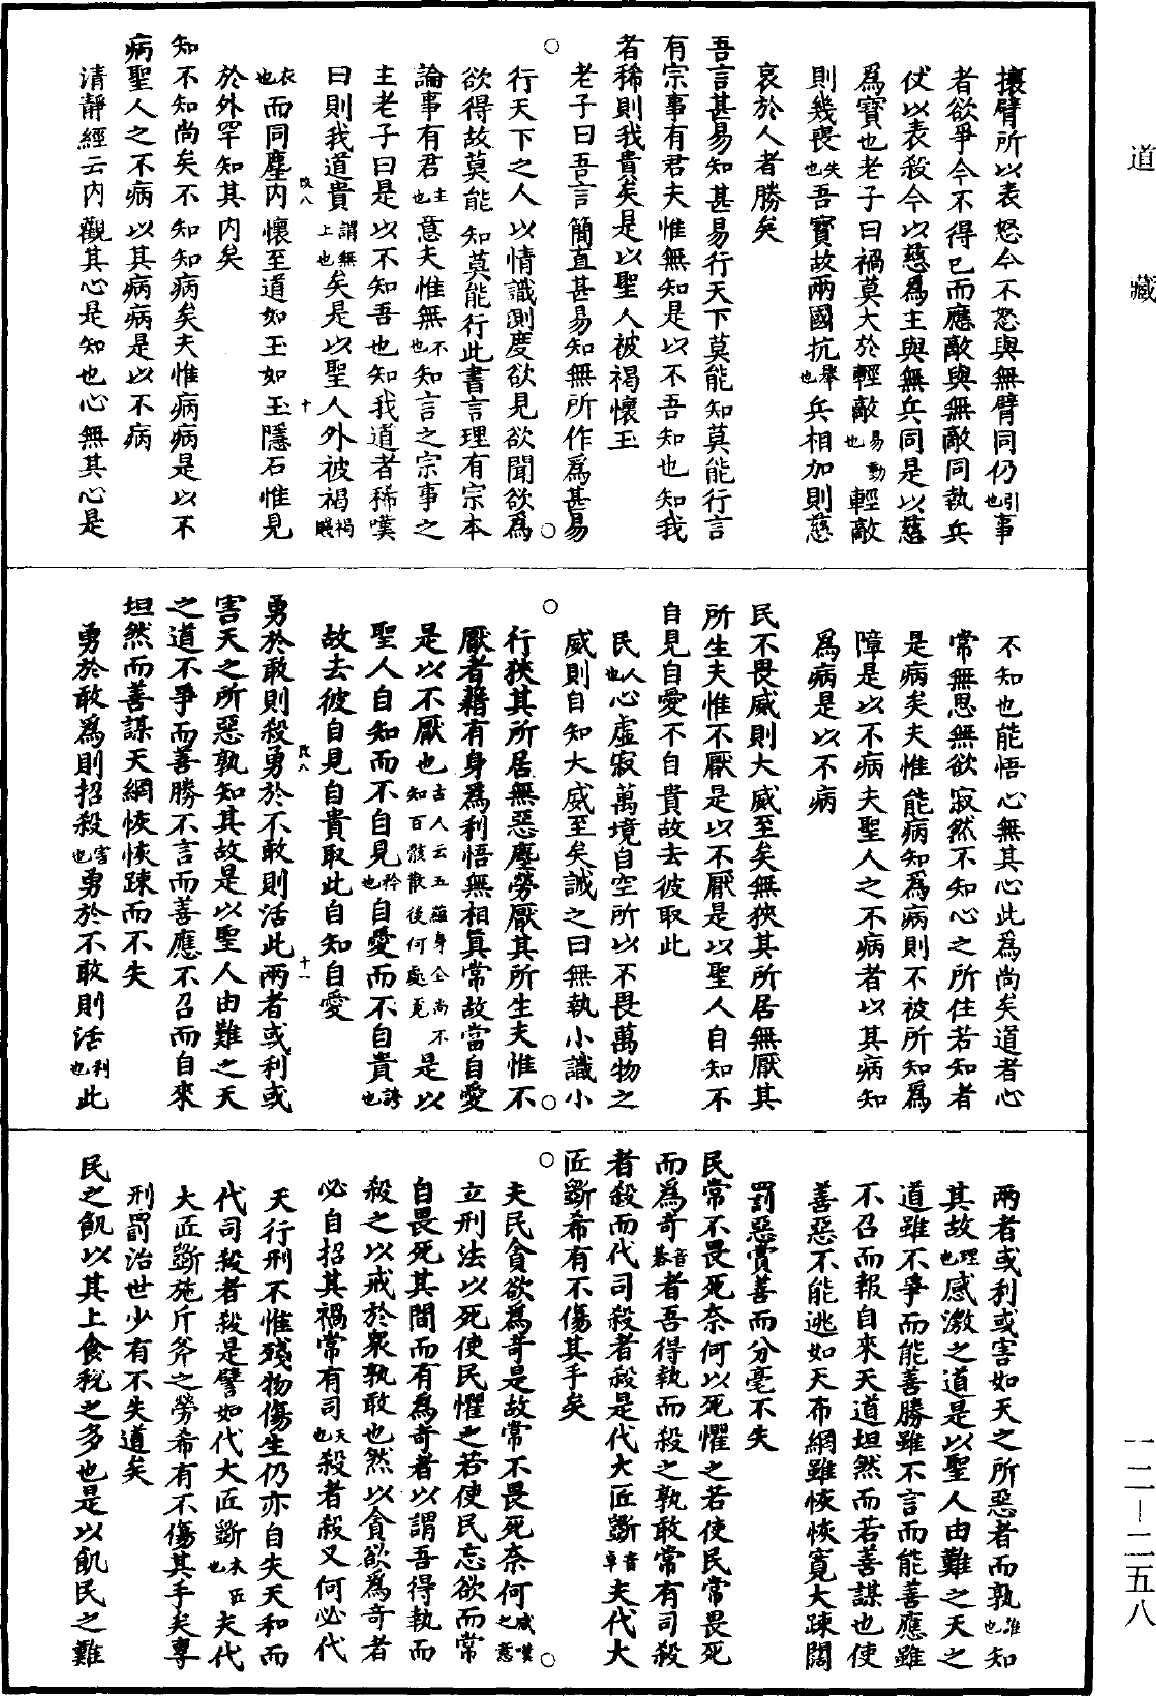 道藏
攘臂所以表怒今不怒與無臂同仍引也事
者欲爭今不得已而應敵與無敵同執兵
仗以表殺今以慈為主與無兵同是以慈
為寶也老子曰禍莫大於輕敵易動也輕敵
則幾喪失也吾寶故兩國抗舉也兵相加則慈
哀於人者勝矣
吾言甚易知甚易行天下莫能知莫能行言
有宗事有君夫惟無知是以不吾知也知我
者稀則我貴矣是以聖人被褐懷玉
老子曰吾言簡直甚易知無所作為甚易
行天下之人以情識測度欲見欲聞欲為
欲得故莫能知莫能行此書言理有宗本
論事有君主也意夫惟無不也知言之宗事之
主老子曰是以不知吾也知我道者稀嘆
曰則我道貴謂無上也矣是以聖人外被褐褐賤
衣也而同塵內懷至道如玉如玉隱石惟見
於外罕知其內矣
知不知尚矣不知知病矣夫惟病病是以不
病聖人之不病以其病病是以不病
清靜經云內觀其心是知也心無其心是
改八
十
不知也能悟心無其心此為尚矣道者心
常無思無欲寂然不知心之所住若知者
是病矣夫惟能病知為病則不被所知為
障是以不病夫聖人之不病者以其病知
為病是以不病
民不畏威則大威至矣無狹其所居無厭其
所生夫惟不厭是以不厭是以聖人自知不
自見自愛不自貴故去彼取此
民人也心虛寂萬境自空所以不畏萬物之
威則自知大威至矣誡之曰無執小識小
行狹其所居無惡塵勞厭其所生夫惟不
厭者藉有身為利悟無相真常故當自愛
是以不厭也古人云五蘊身全尚不知百骸散後何處覓是以
聖人自知而不自見矜也自愛而不自貴誇也
故去彼自見自貴取此自知自愛
勇於敢則殺勇於不敢則活此兩者或利或
害天之所惡孰知其故是以聖人由難之天
之道不爭而善勝不言而善應不召而自來
坦然而善謀天網恢恢踈而不失
勇於敢為則招殺害也勇於不敢則活利也此
改八
十一
兩者或利或害如天之所惡者而孰誰也知
其故理也感激之道是以聖人由難之天之
道雖不爭而能善勝雖不言而能善應雖
不召而報自來天道坦然而若善謀也使
善惡不能逃如天布網雖恢恢寬大踈闊
罰惡賞善而分毫不失
民常不畏死奈何以死懼之若使民常畏死
而為奇音碁者吾得執而殺之孰敢常有司殺
者殺而代司殺者殺是代大匠斲音卓夫代大
匠斲希有不傷其手矣
夫民貪欲為奇是故常不畏死奈何感嘆之意
立刑法以死使民懼之若使民忘欲而常
自畏死其間而有為奇者以謂吾得執而
殺之以戒於眾孰敢也然以貪欲為奇者
必自招其禍常有司天也殺者殺又何必代
天行刑不惟殘物傷生仍亦自失天和而
代司殺者殺是譬如代大匠斲木匠也夫代
大匠斲施斤斧之勞希有不傷其手矣專
刑罰治世少有不失道矣
民之飢以其上食稅之多也是以飢民之難
一二—二五八